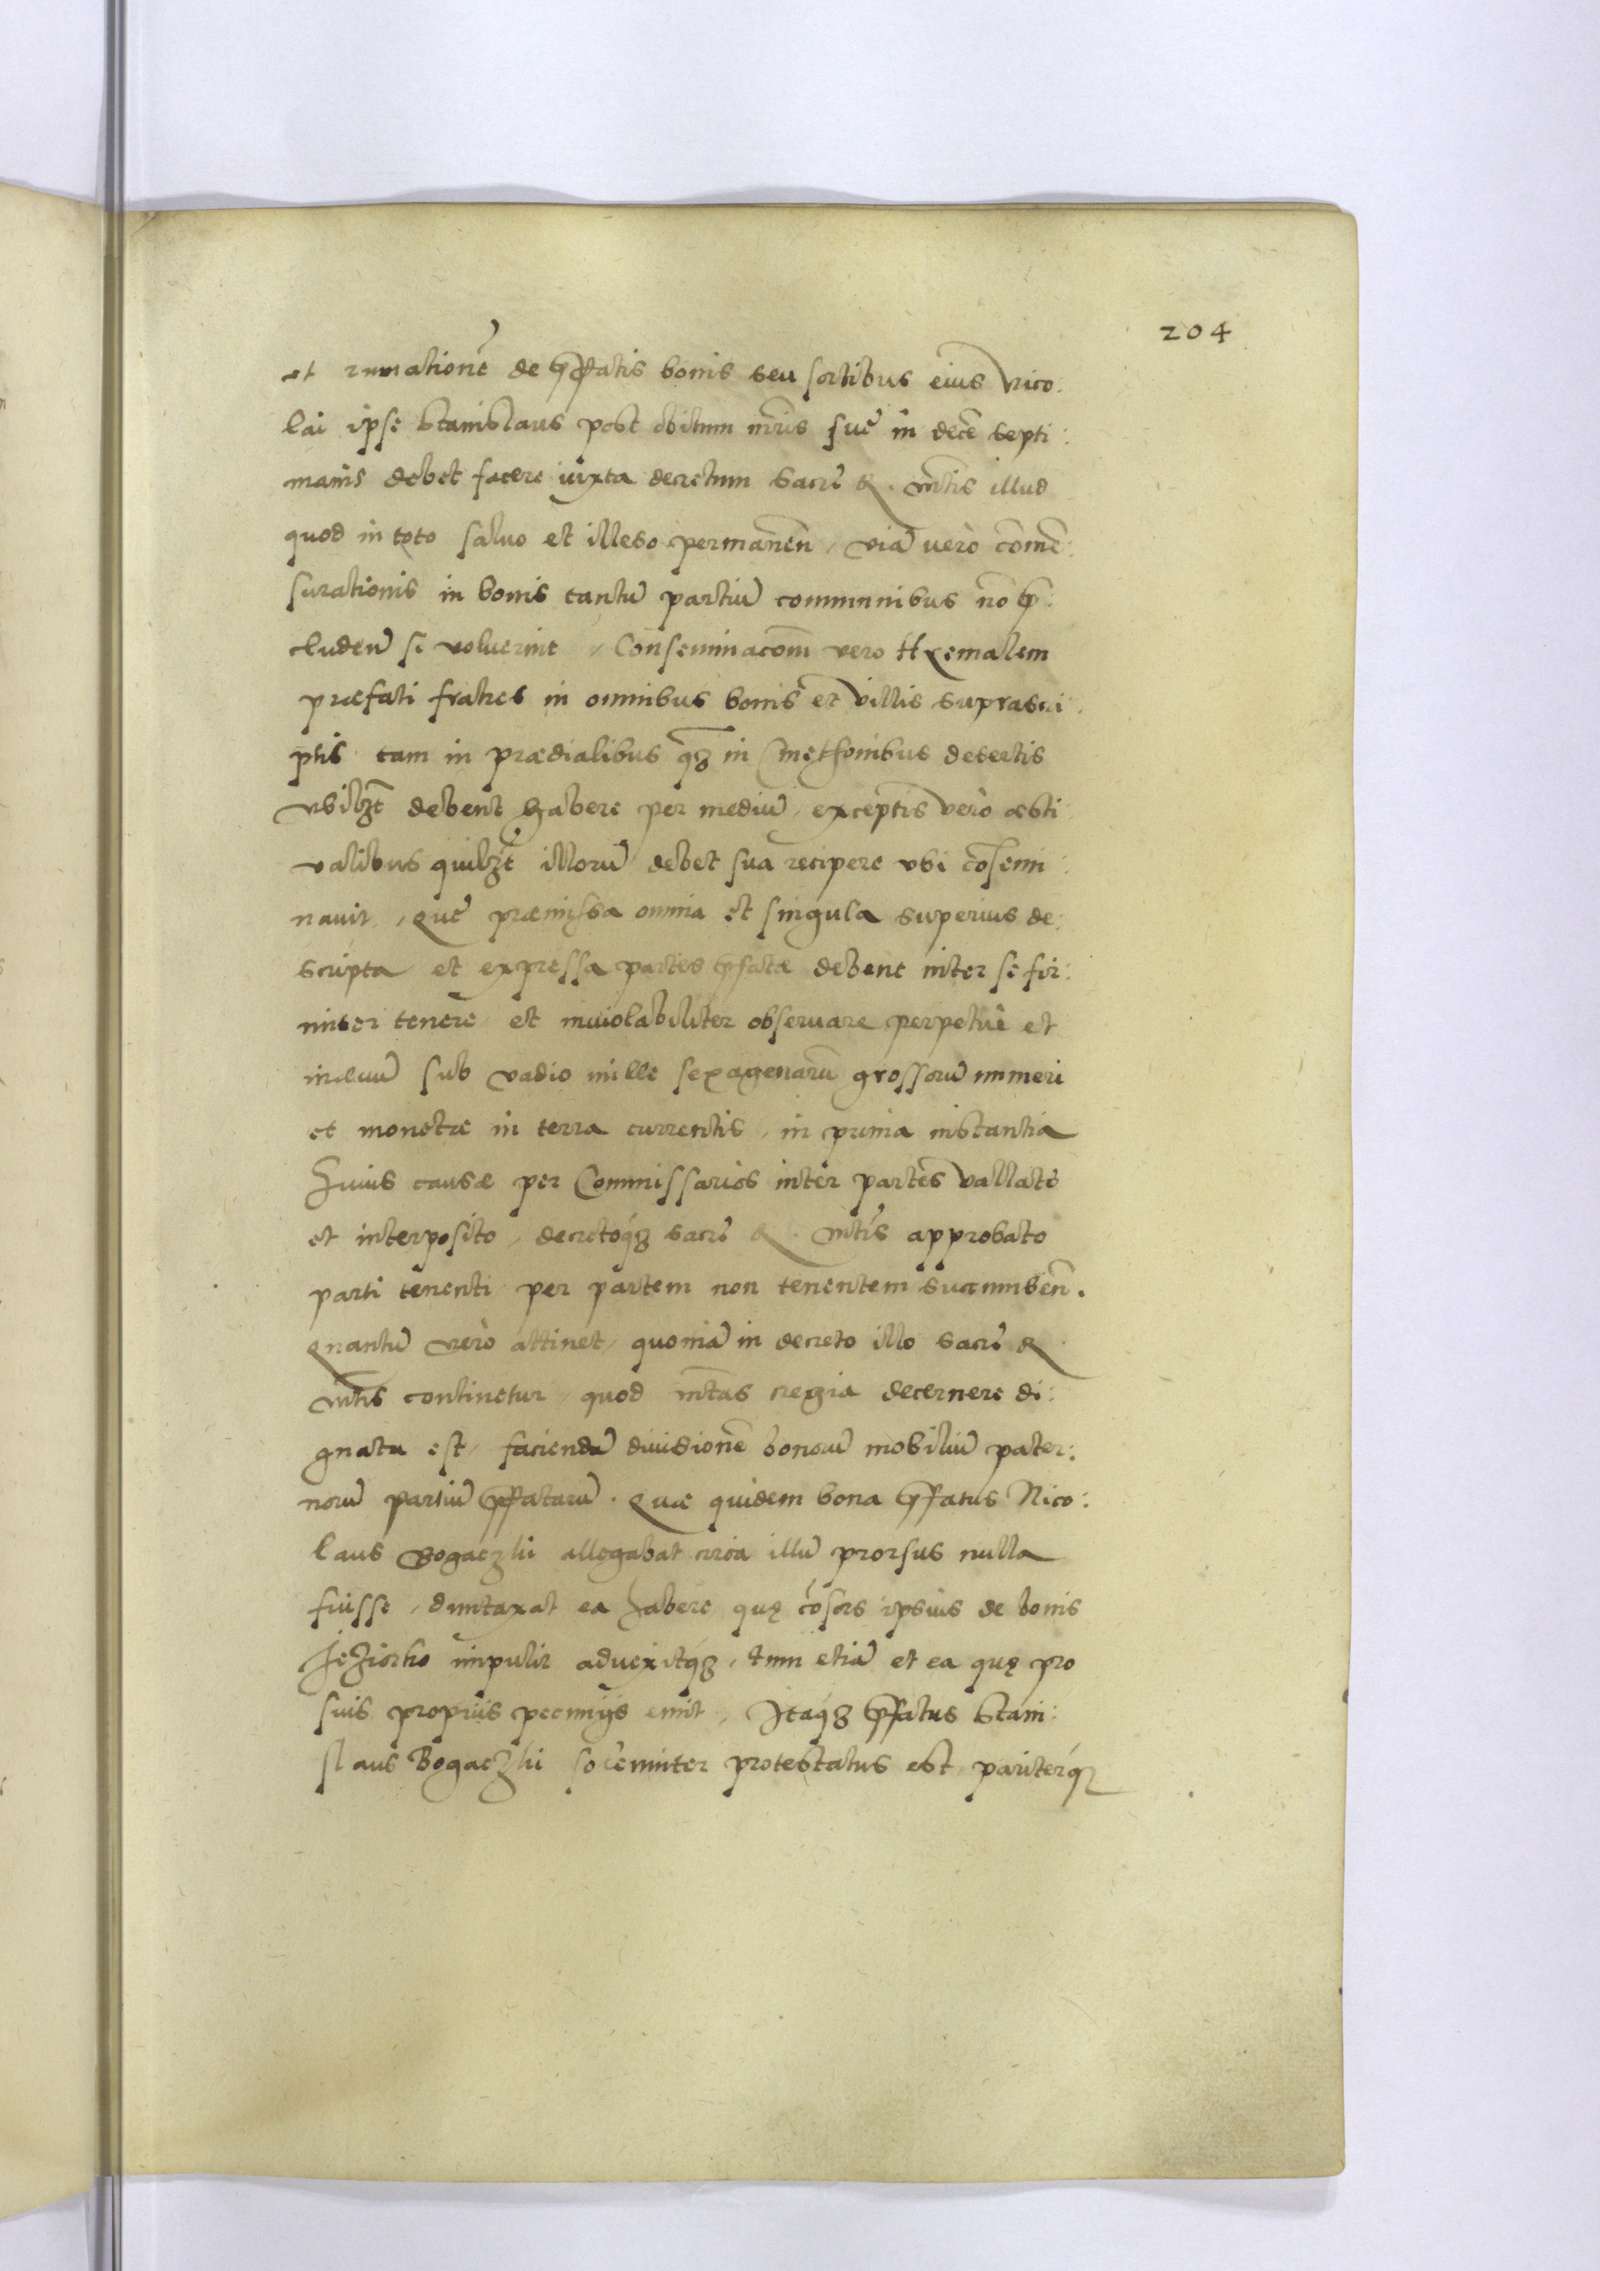 204
et rumationē de p̄fatis bonis seu sortibus eius Nico:
lai ipse Stanislaus post obitum mr̄is suę in decē septi:
manis debet facere iuxta decretum Sacrę R. Mtis illud
quod in toto salvo et illeso permanen̄, via vero com̄e:
surationis in bonis tantū partiū communibus nō p̄:
cluden̄ si voluerint, Conseminacōm vero Hyemalem
præfati fratres in omnibus bonis et villis suprascri:
ptis tam in prædialibus q̄ꝫ in Cmethonibus desertis
vbilꝫt debent habere per mediū, exceptis vero æsti:
valibus quilꝫt illorū debet sua recipere vbi cōsemi:
navit, Quę præmissa omnia et singula superius de:
scripta et expressa partes p̄fatæ debent inter se fir:
miter tenere et inviolabiliter observare perpetue et
in ævū sub vadio mille sexagenarū grossorū numeri
et monetæ in terra currentis, in prima instantia
huius causæ per Commissarios inter partes vallato
et interposito, decretoq́ꝫ Sacrę R. Mtis approbato
parti tenenti per partem non tenentem succumben̄.
Quantū vero attinet, quoniā in decreto illo Sacrę R
Mtis continetur, quod Mtas regia decernere di:
gnata est, faciendā divisionē bonorū mobiliū pater:
norū partiū p̄fatarū. Quæ quidem bona p̄fatus Nico:
laus Bogaczki allegabat circa illū prorsus nulla
fuisse, duntaxat ea habere quę cōsors ipsius de bonis
Jeziorko impulit advexitq́ꝫ, tum etiā et ea quę pro
suis proprijs pecunijs emit, Itaq́ꝫ p̄fatus Stani:
slaus Bogaczki solemniter protestatus est pariterq́ꝫ